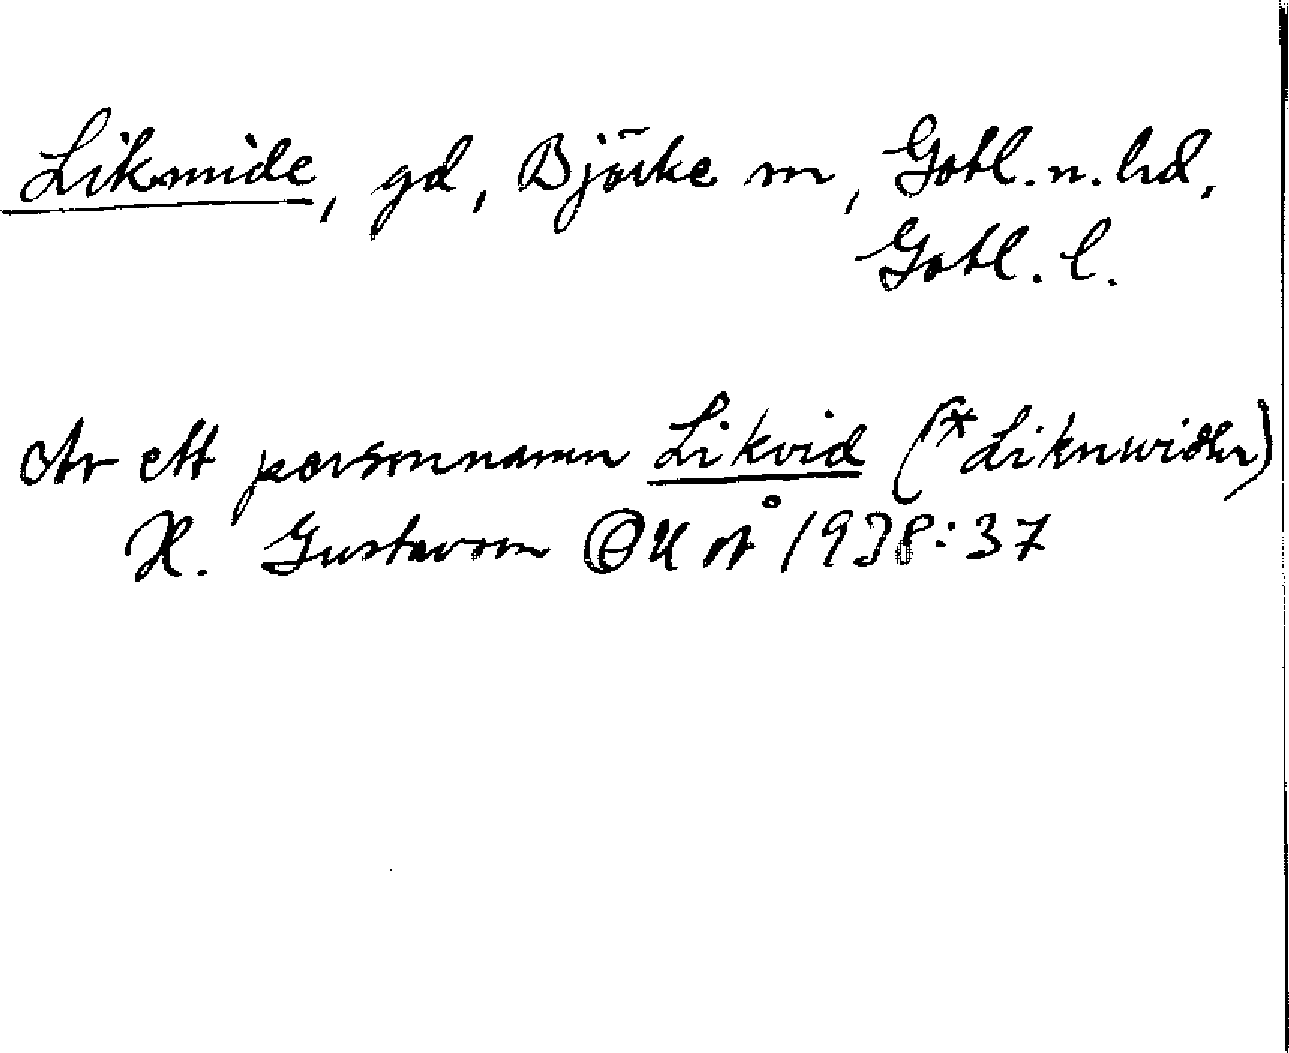 Likmide, gd, Björke sn, Gotl. n. hd,
Gotl. l.
Av ett personnamn Likvid (*Liknwidhr)
H. Gustavson 1938:37